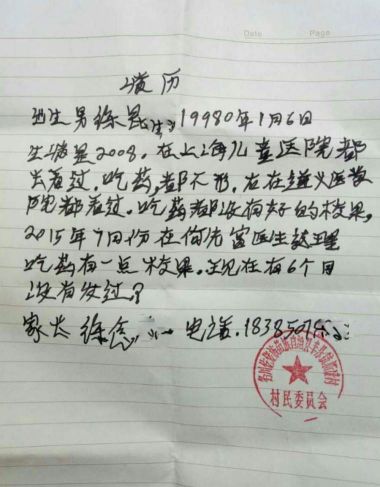 Date Page
病历
出生男徐昆生,19980年1月6日
生病是2008,在上海儿童医院都
去看过,吃药都不形,在在遵义医教
院都看过,吃药都没有好的校果,
2015年7月份在何先富医生这里
吃药有一点校果,现在有6个月
没有发过?
家长徐 电话.183850
村民委员会